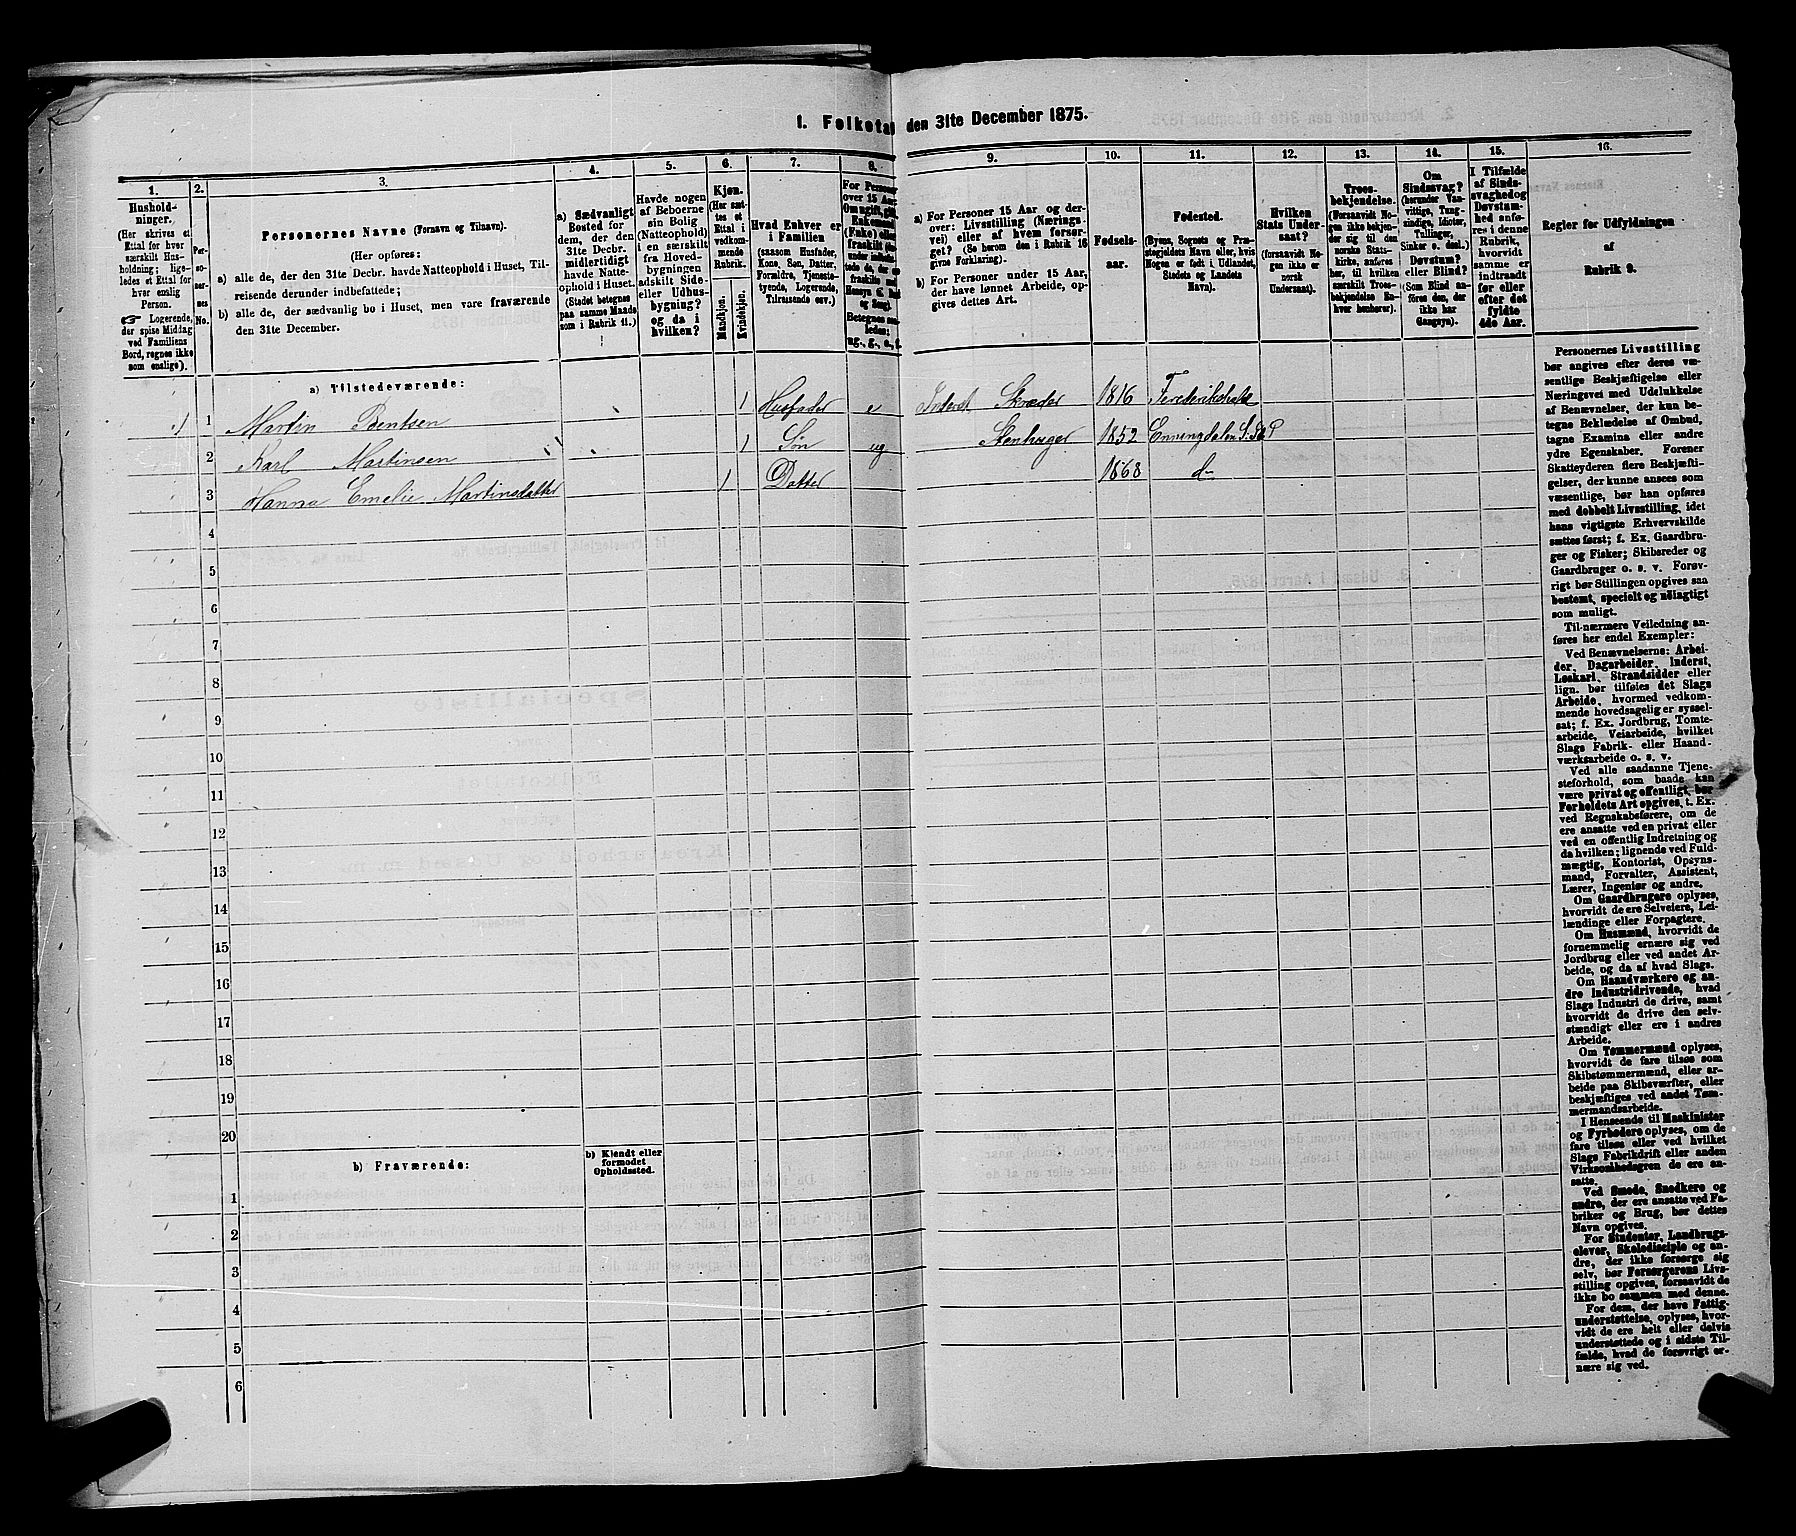 1. Folketal den 31te December 1875.
1.
2.
3.
4.
5.
6.
7.
8.
9.
10.
11.
12.
13.
14.
15.
16.
Hushold-
ninger.
(Her skrives et
Ettal for hver
særskilt Hus-
holdning; lige-
ledes et Ettal for
hver enslig
Person.
☞ Logerende,
der spise Middag
ved Familiens
Bord, regnes ikke
som enslige).
Per-
so-
ner-
nes
No.
Personernes Navne (Fornavn og Tilnavn).
(Her opføres:
a) alle de, der den 31te Decbr. havde Natteophold i Huset, Til-
reisende derunder indbefattede;
b) alle de, der sædvanlig bo i Huset, men vare fraværende
den 31te December.
a) Sædvanligt
Bosted for
dem, der den
31te Decbr.
midlertidigt
havde Natte-
ophold i Huset.
(Stedet betegnes
paa samme Maade
som i Rubrik 11.)
Havde nogen
af Beboerne
sin Bolig
(Natteophold)
i en særskilt
fra Hoved-
bygningen
adskilt Side-
eller Udhus-
bygning?
og da i
hvilken?
Kjøn.
(Her sæt-
tes et
Ettal i
vedkom-
mende
Rubrik.
Mandkjøn.
Kvindekjøn.
Hvad Enhver er
i Familien
(saasom Husfader,
Kone, Søn, Datter,
Forældre, Tjeneste-
tyende, Logerende,
Tilreisende osv.)
For Personer
over 15 Aar:
ug., g., e., f.
a) For Personer 15 Aar og der-
over: Livsstilling (Nærings-
vei) eller af hvem forsør-
get? (Se herom den i Rubrik 16
givne Forklaring).
b) For Personer under 15 Aar,
der have lønnet Arbeide, op-
gives dettes Art.
Fødsels-
aar.
Fødested.
(Byens, Sognets og Præ-
stegjeldets Navn eller, hvis
Nogen er født i Udlandet,
Stedets og Landets
Navn).
Hvilken
Stats Under-
saat?
(forsaavidt No-
gen ikke er
norsk
Undersaat).
Troes-
bekjendelse.
(Forsaavidt No-
gen ikke bekjen-
der sig til den
norske Stats-
kirke, anføres
her, til hvilken
særskilt Troes-
bekjendelse En-
hver henhører).
Om
Sindssvag?
(herunder Van-
vittige, Tung-
sindige, Idioter,
Tullinger,
Sinker o. desl.)
Døvstum?
eller Blind?
(Som Blind an-
føres den, der
ikke har
Gangsyn).
I Tilfælde
af Sinds-
svaghed og
Døvstum-
hed anfø-
res i denne
Rubrik,
hvorvidt
samme er
indtraadt
før eller
efter det
fyldte
4de Aar.
Regler for Udfyldningen
af
Rubrik 9.
a) Tilstedeværende:
1 1 Martin Bentsen 1 Husfader e Inderst Skræder 1816 Frederikshald
2 Karl Martinsen 1 Søn ug Stenhuger 1852 Enningdalen
3 Hanna Emelie Martinsdatter 1 Datter 1868 do
4
5
6
7
8
9
10
11
12
13
14
15
16
17
18
19
20
b) Fraværende:
b) Kjendt eller
formodet
Opholdssted.
1
2
3
4
5
6
Personernes Livsstilling
bør angives efter deres væ-
sentlige Beskjæftigelse eller
Næringsvei med Udelukkelse
af Benævnelser, der kun be-
tegne Beklædelse af Ombud,
tagne Examina eller andre
ydre Egenskaber. Forener
Skatteyderen flere Beskjæfti-
gelser, der kunne ansees som
væsentlige, bør han opføres
med dobbelt Livsstilling, idet
hans vigtigste Erhvervskilde
sættes først; f. Ex. Gaardbru-
ger og Fisker; Skibsreder og
Gaardbruger o. s. v. Forøv-
rigt bør Stillingen opgives saa
bestemt, specielt og nøiagtigt
som muligt.
Til nærmere Veiledning an-
føres her endel Exempler:
Ved Benævnelserne: Arbei-
der, Dagarbeider, Inderst,
Løskarl, Strandsidder eller
lign. bør tilføies det Slags
Arbeide, hvormed vedkom-
mende hovedsagelig er syssel-
sat; f. Ex. Jordbrug, Tomte-
arbeide, Veiarbeide, hvilket
Slags Fabrik- eller Haand-
værksarbeide o. s. v.
Ved alle saadanne Tjene-
steforhold, som baade kan
være privat og offentligt, bør
Forholdets Art opgives, t. Ex.
ved Regnskabsførere, om de
ere ansatte ved en privat eller
ved en offentlig Indretning og
da hvilken; lignende ved Fuld-
mægtig, Kontorist, Opsyns-
mand, Forvalter, Assistent,
Lærer, Ingeniør og andre.
Om Gaardbrugere oplyses,
hvorvidt de ere Selveiere, Lei-
lændinge eller Forpagtere.
Om Husmænd, hvorvidt de
fornemmelig ernære sig ved
Jordbrug eller ved andet Ar-
beide, og da af hvad Slags.
Om Haandværkere og an-
dre Industridrivende, hvad
Slags Industri de drive, samt
hvorvidt de drive den selv-
stændigt eller ere i andres
Arbeide.
Om Tømmermænd oplyses,
hvorvidt de fare tilsøs som
Skibstømmermænd, eller ar-
beide paa Skibsværfter, eller
beskjæftiges ved andet Tøm-
mermandsarbeide.
I Henseende til Maskinister
og Fyrbødere oplyses, om de
fare tilsøs eller ved hvilket
Slags Fabrikdrift eller anden
Virksomhedsgren de ere an-
satte.
Ved Smede, Snedkere og
andre, der ere ansatte ved Fa-
briker og Brug, bør dettes
Navn opgives.
For Studenter, Landbrugs-
elever, Skoledisciple og an-
dre, der ikke forsørge sig
selv, bør Forsørgerens Livs-
stilling opgives, forsaavidt de
ikke bo sammen med denne.
For dem, der have Fattig-
understøttelse, oplyses, hvor-
vidt de ere helt eller delvis
understøttede og i sidste Til-
fælde, hvad de forøvrigt er-
nære sig ved.